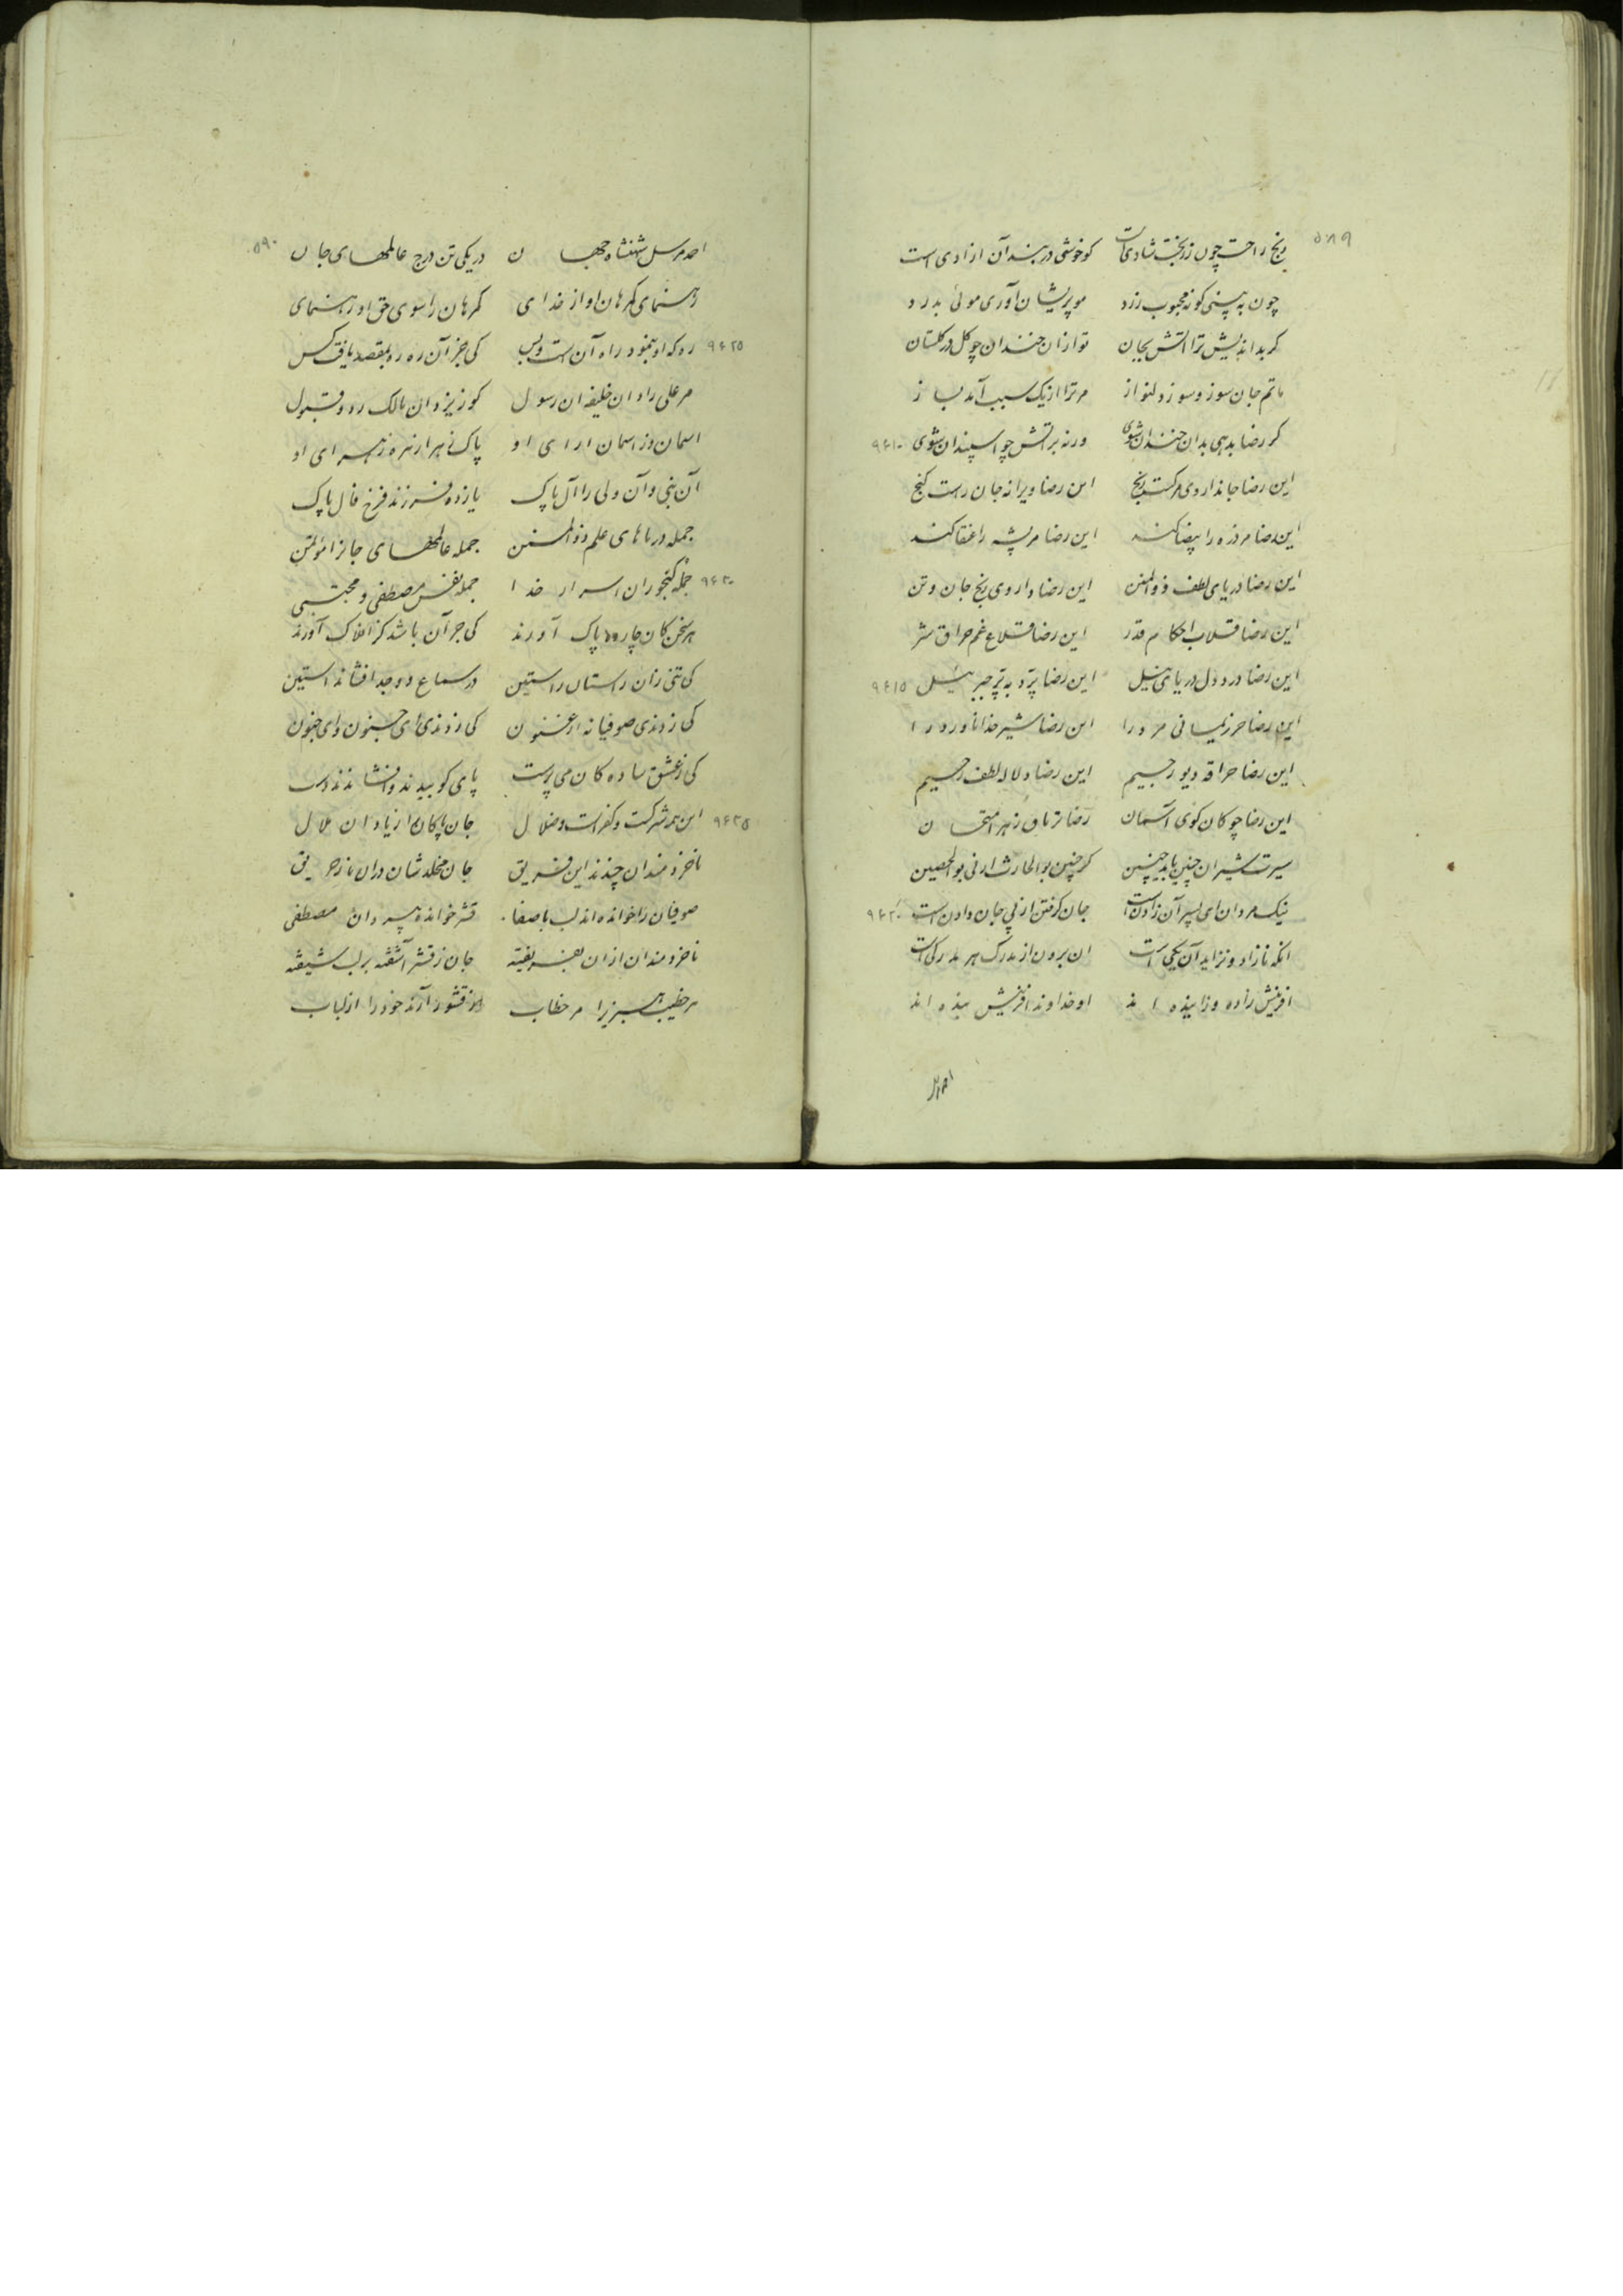 ۵۸۹
رنج راحت چون زبخت شادی است کو خوشی در بند آن ازادی است
چون به بینی کونه محبوب زرد مو پریشان آوری موئی بدرد
کر بد اندیش ترا اتش بجان تو ازان خندان چو کل در کلستان
ماتم جان سوز و سوز دلنواز مر ترا از یک سبب آمد بساز
کر رضا بدهی بدان خندان شوی ورنه بر اتش چو اسپندان شوی ۹۶۱۰
این رضا جانداروی مرکست رنج این رضا ویرانه جان راست کنج
این رضا مر ذره را بیضا کند این رضا مر پشه را عنقا کند
این رضا دریای لطف ذوالمنن این رضا داروی رنج جان و تن
این رضا قلاب احکام قدر این رضا قلاع غم حراق شر
این رضا درد دل دریای نیل این رضا پرد به پر جبرئیل ۹۶۱۵
این رضا حرز یمانی مرد را این رضا شیر خدا ناورد را
این رضا حراقه دیو رجیم این رضا دلاله لطف رحیم
این رضا چوکان کوی آسمان رضا تریاق زهر امتحان
سیرت شیران چنین باید چنین کر چنین بوالحارث ار نی بوالحصین
نیک مردان ای پسر آن زادن است جان کرفتن از پی جان دادن است ۹۶۲۰
انکه نازاد و نزاید آن یکی است ان برون از مدرک هر مدرکی است
افرینش زاده و زاینده اند او خداوند افرینش بنده اند
احمد
۵۹۰
احمد مرسل شهنشاه جهان در یکی تن درج عالمهای جان
رهنمای کمرهان او از خدای کمرهان را سوی حق او رهنمای
ره که او بنمود راه آن است و بس کی جز آن ره ره بمقصد یافت کس ۹۶۲۵
مر علی را دان خلیفه ان رسول کو زیزدان مالک رد و قبول
اسمان وز اسمان ارای او پاک زهرا زهره زهرای او
آن نبی و آن ولی را آل پاک یازده فرزند فرخ فال پاک
جمله دریاهای علم ذوالمنن جمله عالمهای جانرا مؤتمن
جمله کنجوران اسرار خدا جمله نفس مصطفی و مجتبی ۹۶۳۰
هر سخن کان چارده پاک آورند کی جز آن باشد کز افلاک آورند
کی تنی زان راستان راستین در سماع و وجد افشاند استین
کی زدندی صوفیانه ارغنون کی زدندی های جنون و ای جنون
کی زعشق ساده کان می پرست پای کوبیدند و افشاندند دست
این همه شرکت و کفر است و ضلال جان پاکان را زیاد ان ملال ۹۶۳۵
ناخردمندان چندند این فریق جان مخلدشان دران نار حریق
صوفیان را خوانده اند لب با صفا قشر خوانده پیروان مصطفی
ناخردمندان ازان بفریفته جان زقشر آشفته بر لب شیفته
مر خطیب هر بزیرا مر خطاب از قشور آرند خود را از لباب